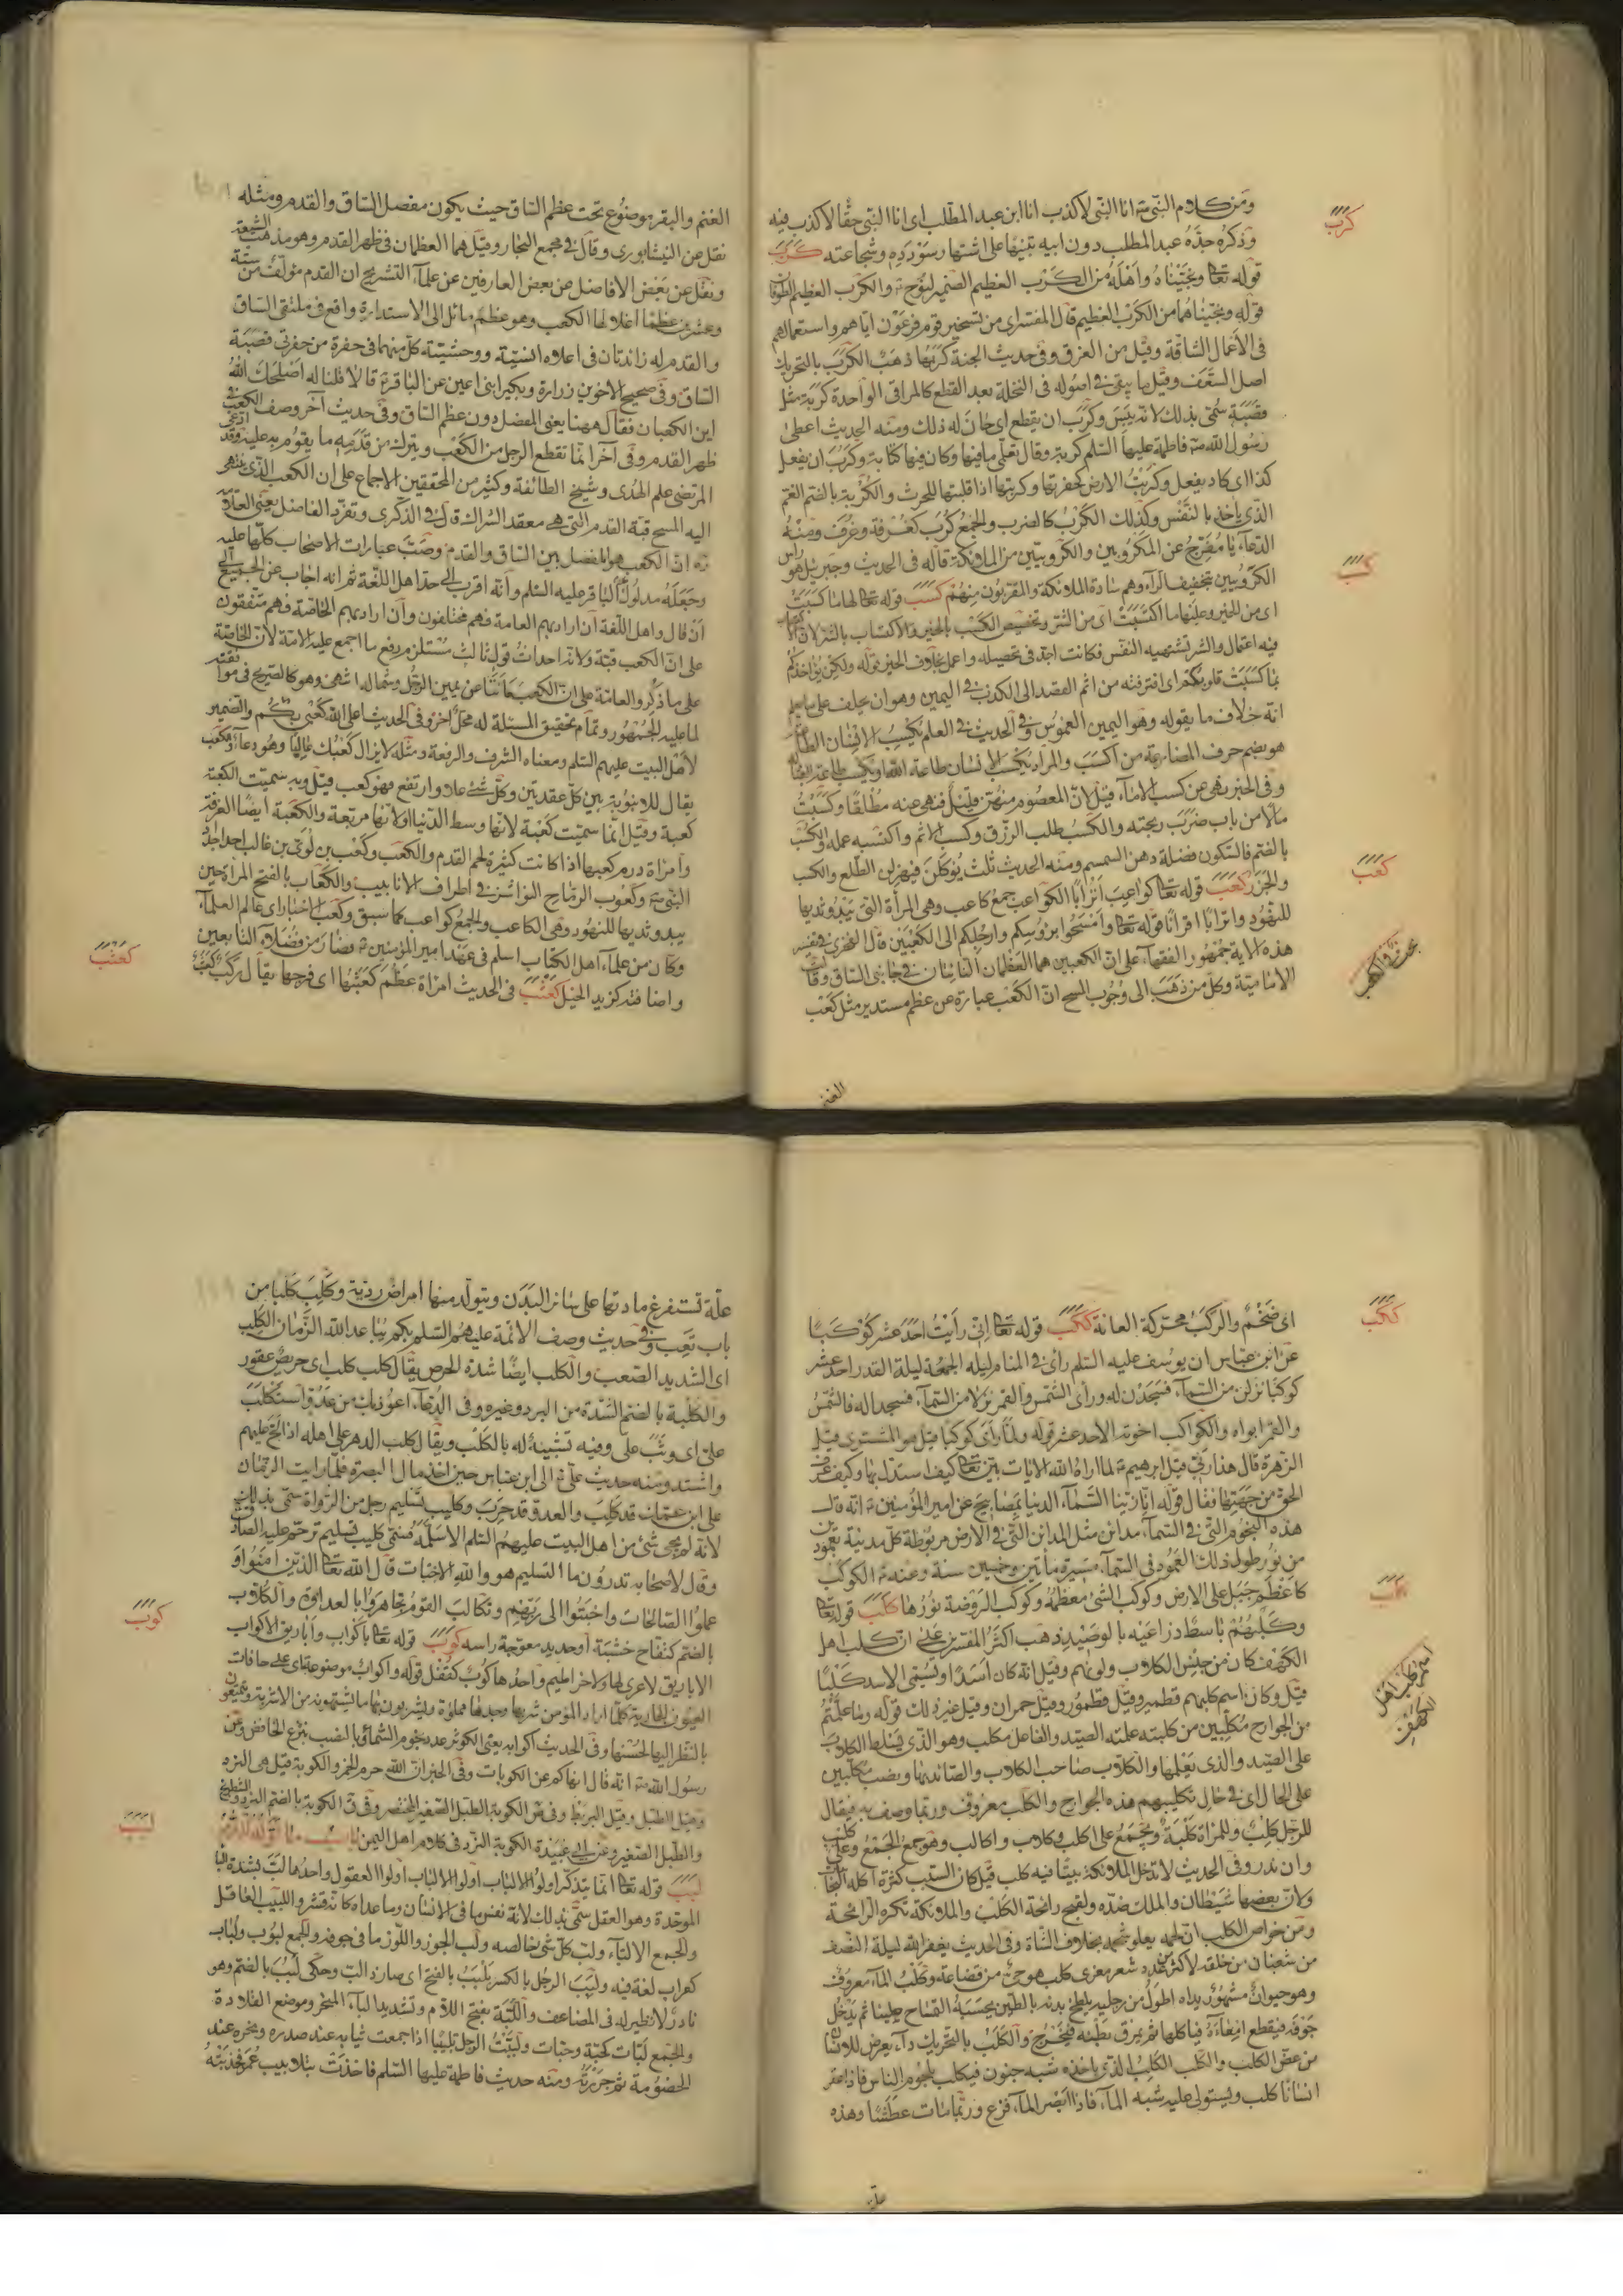 ومن كلام النبي ص انا النبي لا كذب انا ابن عبد المطلب اى انا النبي حقّا لا كذب فيه
كرب
وذكره جدّه عبد المطلب دون ابيه تنبيها على اشتهار سؤدده وشجاعته كرب
قوله تعا ونجّيناه واهله من الكرب العظيم الضمير لنوح ع والكرب العظيم الطوفان
قوله ونجّيناهما من الكرب العظيم قال المفسّر اى من تسخير قوم فرعون اياهم واستعمالهم
فى الأعمال الشاقة وقيل من الغرق وفى حديث الجنة كربها ذهب الكرب بالتحريك
اصل السعف وقيل ما يبقى فى اصوله فى النخلة بعد القطع كالمراقى الواحدة كربة مثل
قصبة سمّى بذلك لانه يبس وكرب ان يقطع اى حان له ذلك ومنه الحديث اعطى
رسول الله ص فاطمة عليها السلم كربة وقال تعلّمى ما فيها وكان فيها كتابة وكرب ان يفعل
كذا اى كاد يفعل وكربت الارض لحفرتها وكربتها اذا قلبتها للحرث والكربة بالضم الغم
الذى يأخذ بالنفس وكذلك الكرب كالضرب والجمع كرب كغرفة وغرف ومنه
الدعاء يا مفرّج عن المكروبين والكروبيين من الملائكة قاله فى الحديث وجبرئيل هو راس
الكرّوبيين بتخفيف الراء وهم سادة الملائكة والمقرّبون منهم كسب قوله تعا لها ما كسبت
كسب
اى من الخير وعليها ما اكتسبت اى من الشر وتخصيص الكسب بالخير والاكتساب بالشر لان الاكتساب
فيه اعتمال والشر تشتهيه النفس فكانت اجدّ فى تحصيله واعمل بخلاف الخير قوله ولكن يؤاخذكم
بما كسبت قلوبكم اى اقترفته من اثم القصد الى الكذب فى اليمين وهو ان يحلف على ما يعلم
انه خلاف ما يقوله وهو اليمين الغموس وفى الحديث فى العلم يكسب الانسان الطاعة
هو بضم حرف المضارعة من اكسب والمراد يكسب الانسان طاعة الله او يكسب طاعة العباد
وفى الخبر نهى عن كسب الاماء قيل لان المعصوم منهنّ قليل فنهى عنه مطلقا وكسبت
مالا من باب ضرب ربحته والكسب طلب الرزق وكسب الاثم واكتسبه عمله والكسب
بالضم فالسكون فضلة دهن السمسم ومنه الحديث ثلث يؤكلن فيهزلن الطلع والكسب
والجزر كعب قوله تعا كواعب اترابا الكواعب جمع كاعب وهى المرأة التى يبدو ثديها
كعب
للنهود واترابا اقرانا قوله تعا وامسحوا برؤسكم وارجلكم الى الكعبين قال الفخرى فى تفسير
هذه الاية جمهور الفقهاء على ان الكعبين هما العظمان الناتئان فى جانبى الساق وقالت
الامامية وكل من ذهب الى وجوب المسح ان الكعب عبارة عن عظم مستدير مثل كعب
الغنم
الغنم والبقر موضوع تحت عظم الساق حيث يكون مفصل الساق والقدم ومثله
نقل عن النيشابورى وقال فى مجمع البحار وقيل هما العظمان فى ظهر القدم وهو مذهب الشيعة
ونقل عن بعض الافاضل عن بعض العارفين عن علماء التشريح ان القدم مؤلّف من ستة
وعشرين عظما اعلاها الكعب وهو عظم مائل الى الاستدارة واقع فى ملتقى الساق
والقدم له زائدتان فى اعلاه انسيّة ووحشيّة كل منهما فى حفرة من حفرتى قصبة
الساق وفى صحيح الاخوين زرارة وبكير ابنى اعين عن الباقر ع قالا قلنا له اصلحك الله
اين الكعبان فقال ههنا يعنى المفصل دون عظم الساق وفى حديث آخر وصف الكعب فى
ظهر القدم وفى آخر انما تقطع الرجل من الكعب ويترك من قدمه ما يقوم به عليه وقد ادعى
المرتضى علم الهدى وشيخ الطائفة وكثير من المحققين الاجماع على ان الكعب الذى ينتهى
اليه المسح قبّة القدم التى هى معقد الشراك قال فى الذكرى وتفرّد الفاضل يعنى العلامة
ره ان الكعب هو المفصل بين الساق والقدم وصبّ عبارات الاصحاب كلها عليه
وجعله مدلول الباقر عليه السلم وانه اقرب الى حد اهل اللغة ثم انه اجاب عن الجميع الى
ان قال واهل اللغة ان اراد بهم العامة فهم مختلفون وان اراد بهم الخاصة فهم متفقون
على ان الكعب قبة ولانه احداث قول ثالث مستلزم رفع ما اجمع عليه الامة لان الخاصة
على ما ذكر والعامة على ان الكعب ما نتأ عن يمين الرجل وشماله انتهى وهو كالصريح فى موافقته
لما عليه الجمهور وتمام تحقيق المسئلة له محل اخر وفى الحديث اعلى الله كعبى بكم والضمير
لأهل البيت عليهم السلم ومعناه الشرف والرفعة ومثله لا يزال كعبك عاليا وهو دعاء والكعب
يقال للانبوبة بين كل عقدتين وكل شئ علا وارتفع فهو كعب قيل وبه سميت الكعبة
كعبة وقيل انما سميت كعبة لانها وسط الدنيا او لانها مربّعة والكعبة ايضا الغرفة
وامرأة درم كعبها اذا كانت كثيرة لحم القدم والكعب وكعب بن لؤى بن غالب احد اجداد
النبى ص وكعوب الرماح النواشز فى اطراف الانابيب والكعاب بالفتح المرأة حين
يبدو ثديها للنهود وهى الكاعب والجمع كواعب كما سبق وكعب الاحبار اى عالم العلماء
وكان من علماء اهل الكتاب اسلم فى عهد امير المؤمنين ع فصار من فضلاء التابعين
واضافته كزيد الخيل كعثب فى الحديث امرأة عظم كعثبها اى فرجها يقال ركب كعثب
كعثب
اى ضخم والركب محركة العانة ككب قوله تعا انى رأيت احد عشر كوكبا
ككب
عن ابن عباس ان يوسف عليه السلم رأى فى المنام ليلة الجمعة ليلة القدر احد عشر
كوكبا نزلن من السماء فسجدن له ورأى الشمس والقمر نزلا من السماء فسجدا له فالشمس
والقمر ابواه والكواكب اخوته الاحد عشر قوله ولما رأى كوكبا قيل هو المشترى وقيل
الزهرة قال هذا ربى قيل ابرهيم ع لما اراه الله الايات بيّن تعا كيف استدل بها وكيف عرف
الحق من جهتها فقال قوله انا زيّنا السماء الدنيا بمصابيح عن امير المؤمنين ع انه قال
هذه النجوم التى فى السماء مدائن مثل المدائن التى فى الارض مربوطة كل مدينة بعمودين
من نور طول ذلك العمود فى السماء مسيرة مأتين وخمسين سنة وعنه ع الكوكب
كاعظم جبل على الارض وكوكب الشئ معظمه وكوكب الروضة نورها كلب قوله تعا
كلب
وكلبهم باسط ذراعيه بالوصيد ذهب اكثر المفسرين على ان كلب اهل
الكهف كان من جنس الكلاب ولونهم وقيل انه كان اسدا ويسمّى الاسد كلبا
اسم كلب اهل الكهف
قيل وكان اسم كلبهم قطمير وقيل قطمور وقيل حمران وقيل غير ذلك قوله وما علّمتم
من الجوارح مكلّبين من كلّبته علّمته الصيد والفاعل مكلّب وهو الذى يسلط الكلاب
على الصيد والذى يعلّمها والكلّاب صاحب الكلاب والصائد بها ونصب مكلّبين
على الحال اى فى حال تكليبهم هذه الجوارح والكلب معروف وربما وصف به فيقال
للرجل كلب وللمرأة كلبة ويجمع على اكلب وكلاب واكالب وهو جمع الجمع وعلى كليب
وان ندر وفى الحديث لا تدخل الملائكة بيتا فيه كلب قيل كان السبب كثرة اكله النجاسة
ولان بعضها شيطان والملك ضده ولقبح رائحة الكلب والملائكة تكره الرائحة
ومن خواص الكلب ان لحمه يعلو شحمه بخلاف الشاة وفى الحديث يغفر الله ليلة النصف
من شعبان من خلقه لاكثر من عدد شعر معزى كلب هو حى من قضاعة وكلب الماء معروف
وهو حيوان مشهور يداه اطول من رجليه يلطخ بدنه بالطين يحسبه التمساح طينا ثم يدخل
جوفه فيقطع امعاءه فيأكلها ثم يمزق بطنه فيخرج والكلب بالتحريك داء يعرض للانسان
من عض الكلب والكلب الكلب الذى ياخذه شبه جنون فيكلب بلحوم الناس فاذا عقر
انسانا كلب ويستولى عليه شبه الماء فاذا ابصر الماء فزع وربما مات عطشا وهذه
علة
علّة تستفرغ مادتها على سائر البدن ويتولد منها امراض رديّة وكلب كلبا من
باب تعب وفى حديث وصف الائمة عليهم السلم بكم يباعد الله الزمان الكلب
اى الشديد الصعب والكلب ايضا شدة الحرص يقال كلب كلب اى حريص عقور
والكلبة بالضم الشدة من البرد وغيره وفى الدعاء اعوذ بك من عدو استكلب
علىّ اى وثب علىّ وفيه تشبيه له بالكلب ويقال كلب الدهر على اهله اذا الحّ عليهم
واشتد ومنه حديث على ع الى ابن عباس حين اخذ مال البصرة فلما رايت الزمان
على ابن عمك قد كلب والعدو قد حرب وكليب تسليم رجل من الرواة سمّى بذلك
لانه لم يجئ شئ من اهل البيت عليهم السلم الا سلّمه فسمى كليب تسليم ترحّم عليه الصادق
وقال لاصحابه تدرون ما التسليم هو والله الاخبات قال الله تعا الذين امنوا و
عملوا الصالحات واخبتوا الى ربهم وتكالب القوم تجاهروا بالعداوة والكلّاب
بالضم كتفّاح خشبة او حديد معوجة راسه كوب قوله تعا باكواب واباريق الاكواب
كوب
الاباريق لا عرى لها ولا خراطيم واحدها كوب كقفل قوله واكواب موضوعة اى على حافات
العيون الجارية كلما اراد المؤمن شربها وجدها مملؤة ويشربون بها ما يشتهونه من الاشربة ويتمتعون
بالنظر اليها لحسنها وفى الحديث اكوابه يعنى الكوثر عدد نجوم السماء بالنصب بنزع الخافض وعن
رسول الله ص انه قال انهاكم عن الكوبات وفى الخبر ان الله حرم الخمر والكوبة قيل هى النرد
وقيل الطبل وقيل البربط وفى ص الكوبة الطبل الصغير المخصّر وفى ق الكوبة بالضم النرد والشطرنج
والطبل الصغير وعن ابى عبيدة الكوبة النرد فى كلام اهل اليمن
لبب
لبب قوله تعا انما يتذكر اولوا الالباب اولوا الالباب اولوا العقول واحدها لب بشدة الباء
الموحّدة وهو العقل سمّى بذلك لانه نفس ما فى الانسان وما عداه كانه قشر واللبيب العاقل
والجمع الالبّاء ولب كل شئ خالصه ولب الجوز واللوز ما فى جوفه والجمع لبوب ولباب
كغراب لغة فيه ولبب الرجل بالكسر يلبب بالفتح اى صار ذا لب وحكى لبب بالضم وهو
نادر لا نظير له فى المضاعف واللبّة بفتح اللام وتشديد الباء المنحر وموضع القلادة
والجمع لبّات كحبّة وحبّات ولبّبت الرجل تلبيبا اذا جمعت ثيابه عند صدره ونحره عند
الخصومة ثم جررته ومنه حديث فاطمة عليها السلم فاخذت بتلابيب عمر فجذبته